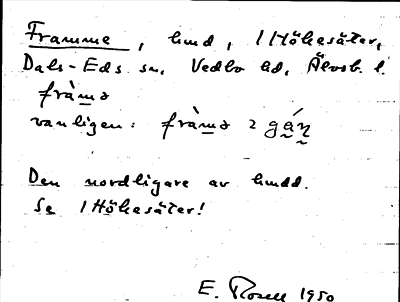 Framme, hmd, 1 Hökesäter,
Dals-Eds sn. Vedbo hd. Älvsb. l.
fràmə
vanligen: fràmə 2 gáɳ
Den nordligare av hmdd.
Se 1 Hökesäter!
E. Rosell 1950